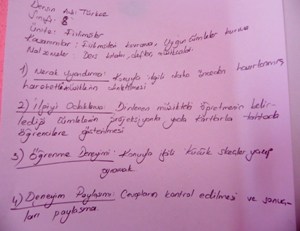 Dersin Adı: Türkçe
Sınıf: 8
Ünite: Fiilimsiler
Kazanımlar: Fiilimsileri kavrama, uygun cümlelerde kullanma
Malzemeler: Ders kitabı, defter,
1) Merak Uyandırma: Konuyla ilgili daha önceden hazırlanmış
2) İlgiyi Odaklama: Dinleme müzikteki öğretmenin belir-
lediği cümlelerin projeksiyonla yada kartlarla tahtada
öğrencilere gösterilmesi
3) Öğrenme Deneyimi: Konuyla ilgili küçük skeçler yazıp
oynamak
4) Deneyim Paylaşımı: Cevapların kontrol edilmesi ve sonuç-
ları paylaşma.